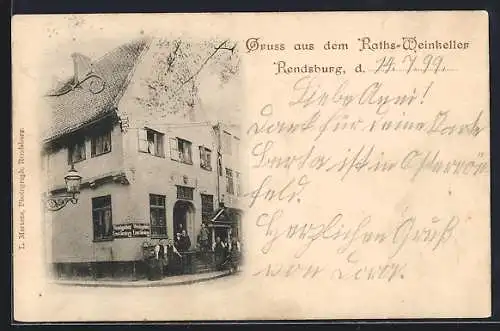 Gruss aus dem Raths-Weinkeller
Rendsburg, d. 14.7.99.
Liebe Agni!
Dank für deine Karte
Berta ist in Osterrön-
feld.
Herzlichen Gruß
von
L. Martens, Photograph, Rendsburg.